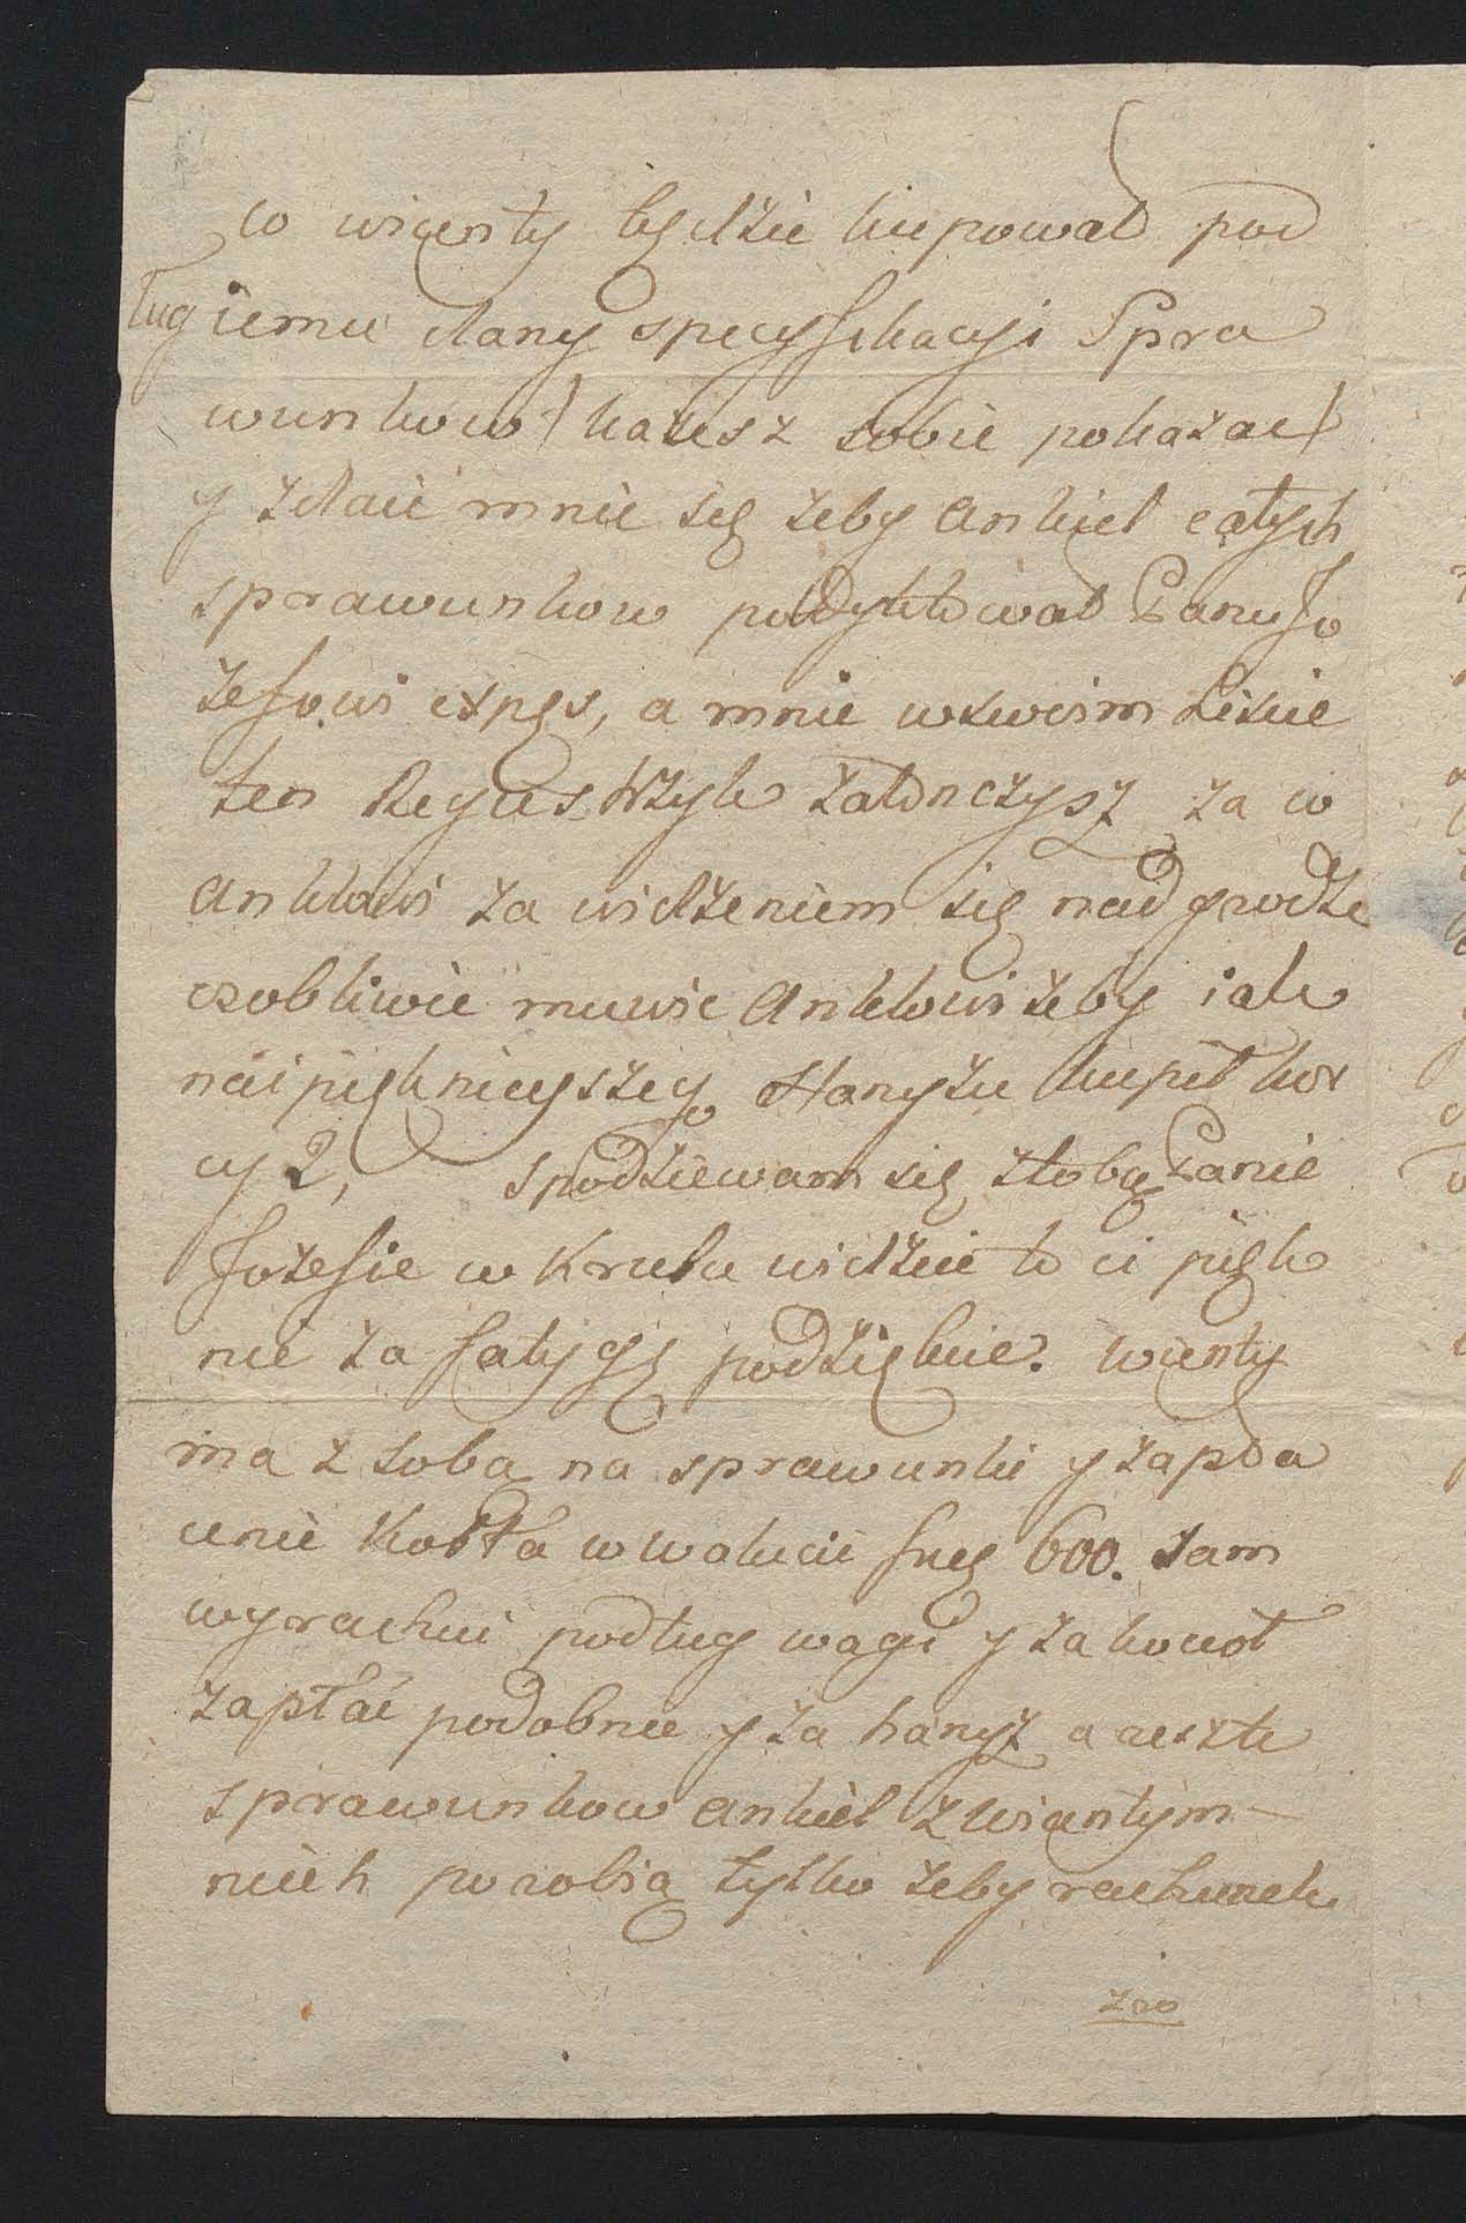 co wicenty będzie kupował pod
ług iemu dany specyfikacyi Spra
wunkow / każesz sobie pokazac /
y zdaie mnie się żeby ankiel całych
sprawunkow podyktował Panu Jo
zefowi expęs, a mnie wswoim Liscie
ten Regiestrzyk załonczysz za co
anklowi za widzeniem się nadgrodze
osobliwie muwic anklowi żeby iak
naipięknieyszego Hanyżu kupił kor
cy 2, spodziewam się ztobą Panie
Jozefie w Krulu widzieć to ci pięk
nie za fatygę podziękuie. wicenty
ma z sobą na sprawunki y zapła
cenie Kotła w walucie fneg 600. sam
wyrachui podług wagi y za kocioł
zapłać podobnie y za hanyż a reszte
sprawunkow ankiel z wicentym
niech porobią tylko żeby rachunek
zro